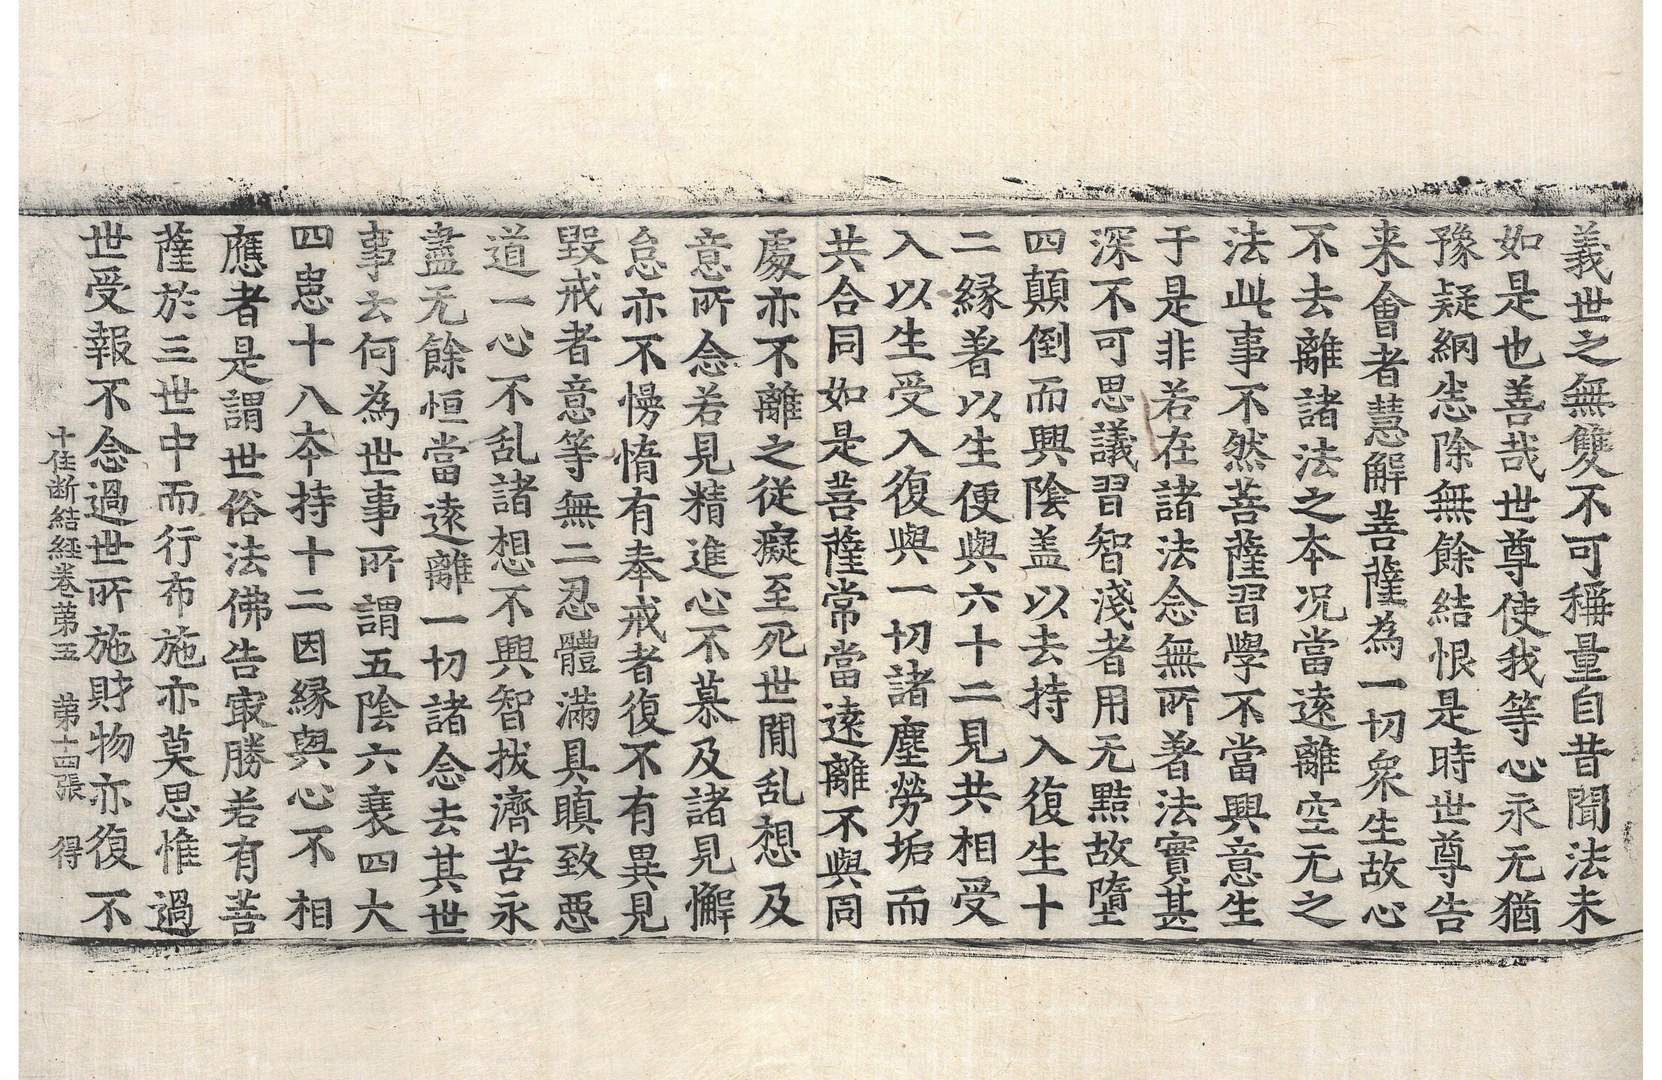 義世之無雙不可稱量自昔聞法未
如是也善哉世尊使我等心永无猶
豫疑網恙除無餘結恨是時世尊告
来會者慧解菩薩為一切衆生故心
不去離諸法之本况當遠離空无之
法此事不然菩薩習學不當興意生
于是非若在諸法念無所著法實甚
深不可思議習智淺者用无黠故墮
四顛倒而興陰盖以去持入復生十
二緣著以生便與六十二見共相受
入以生受入復與一切諸塵勞垢而
共合同如是菩薩常當遠離不與同
處亦不離之従癡至死世間乱想及
意所念若見精進心不慕及諸見懈
怠亦不慢惰有奉戒者復不有異見
毀戒者意等無二忍體滿具瞋致惡
道一心不乱諸想不興智拔濟苦永
盡无餘恒當遠離一切諸念去其世
事去何為世事所謂五陰六衰四大
四患十八夲持十二因緣與心不相
應者是謂世俗法佛告㝡勝若有菩
薩於三世中而行布施亦莫思惟過
世受報不念過世所施財物亦復不
十住断結経卷第五 第十四張 得